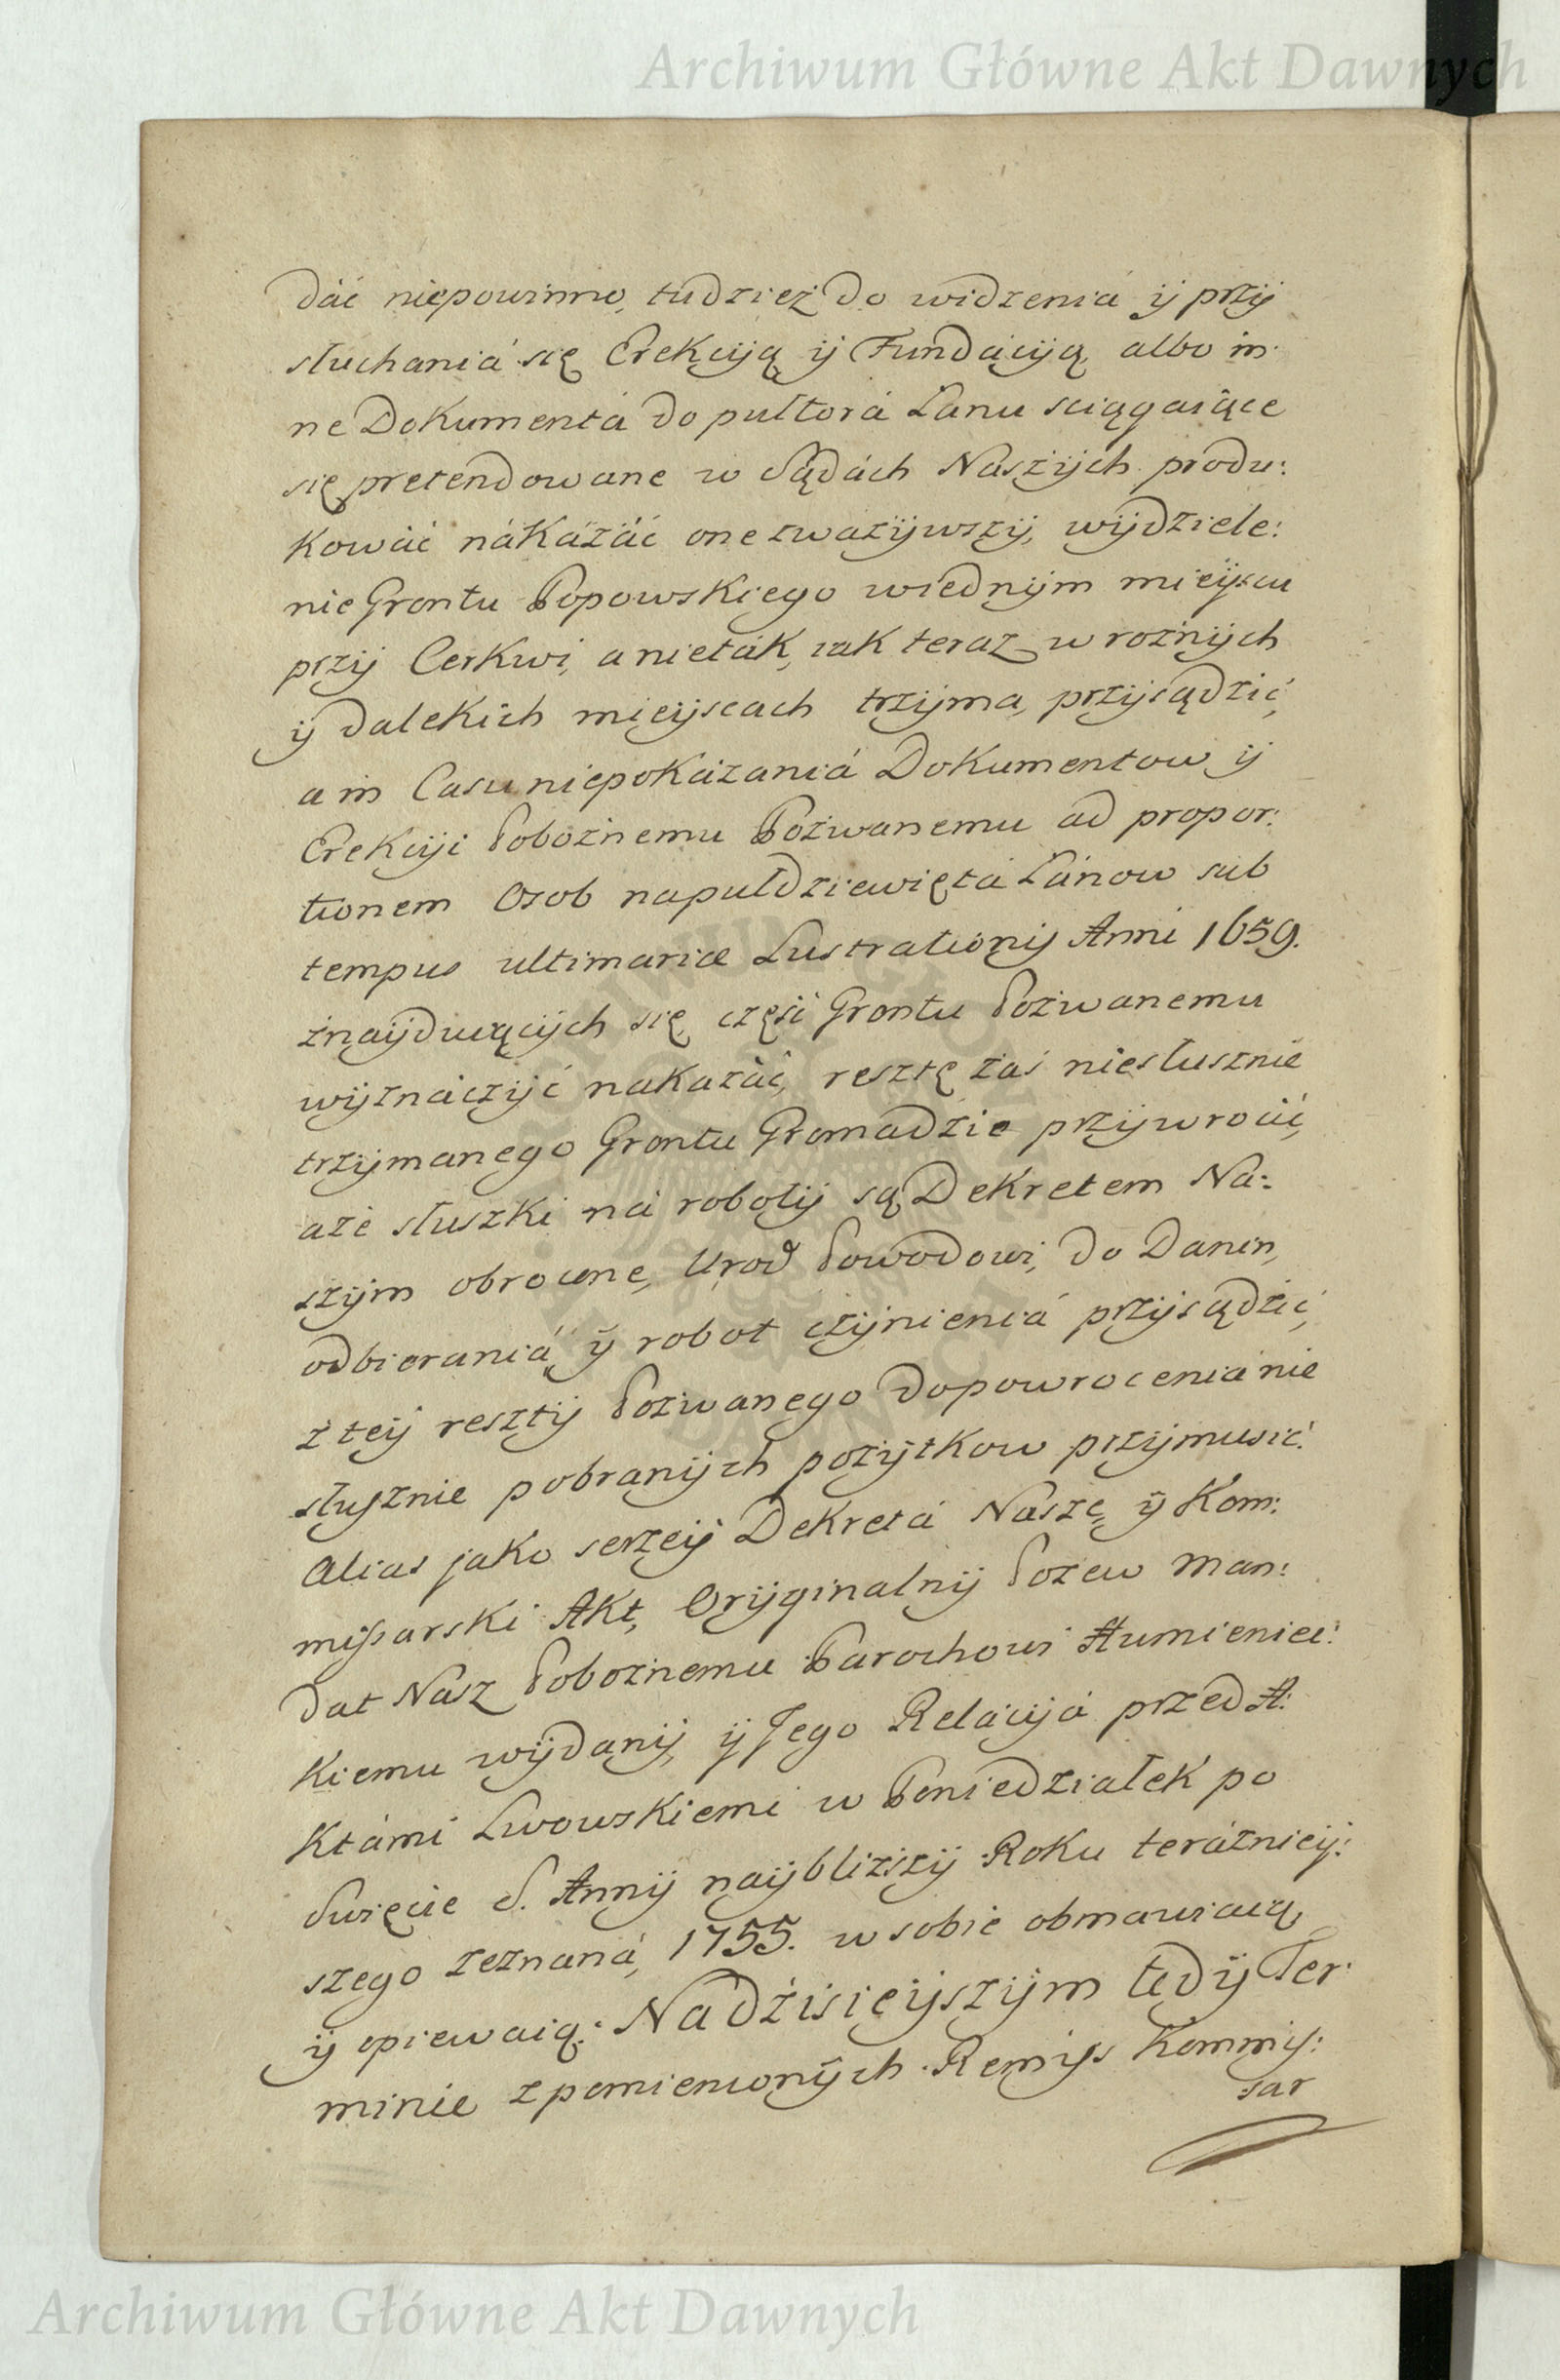 Archiwum Główne Akt Dawnych
dáć niepowinno, tudziez do widzeniá ÿ przÿ
słuchaniá się Erekcÿą ÿ Fundácÿą albo in:
ne Dokumentá do pułtorá Łanu sciągaiące
się pretendowane w Sądách Naszÿch produ:
kowáć nákázáć one zwazÿwszÿ, wÿdziele:
nie Grontu Popowskiego wiednÿm mieÿscu
przÿ Cerkwi, a nieták, iak teraz w roznÿch
ÿ dalekich mieÿscach trzÿma, przÿsądzić,
a in Casu niepokázaniá Dokumentow ÿ
Erekcÿi Poboznemu Pozwanemu ad propor:
tionem Osob napułdziewiętá Łánow sub
tempus ultimariæ Lustrationÿ Anni 1659.
znaÿduiącÿch się, częśi Grontu Pozwanemu
wÿznáczÿć nakazáć, resztę zaś niesłusznie
trzÿmanego Grontu Gromadzie przÿwrocić,
aze słuszki ná robotÿ są Dekretem Na:
szÿm obrocone, Urod Powodowi, do Danin,
odbieraniá ÿ robot czÿnieniá przÿsądzić,
z teÿ resztÿ Pozwanego do powroceniá nie
słusznie pobranÿch pozÿtkow przÿmusić.
Alias jako szerzeÿ Dekretá Nasze, ÿ Kom:
missarski Akt, Orÿginalnÿ Pozew Man:
dat Nász Poboznemu Parochowi Humieniec:
kiemu wÿdanÿ, ÿ Jego Relácÿá przed A:
ktámi Lwowskiemi w Poniedziałek po
Swięcie S. Annÿ naÿblizszÿ Roku teráznieÿ:
szego zeznaná, 1755. w sobie obmawiaią,
ÿ opiewaią. Na dzisieÿszÿm tedÿ Ter:
minie z pomienionÿch Remiss Kommis:
sar
Archiwum Główne Akt Dawnych